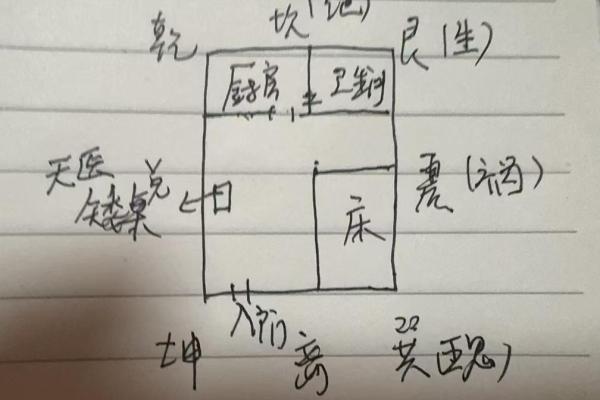 乾 坎(绝) 艮(生)
厨房 卫生间
天医
矮桌 兑
震(祸)
床
入门
坤 离 巽(五鬼)